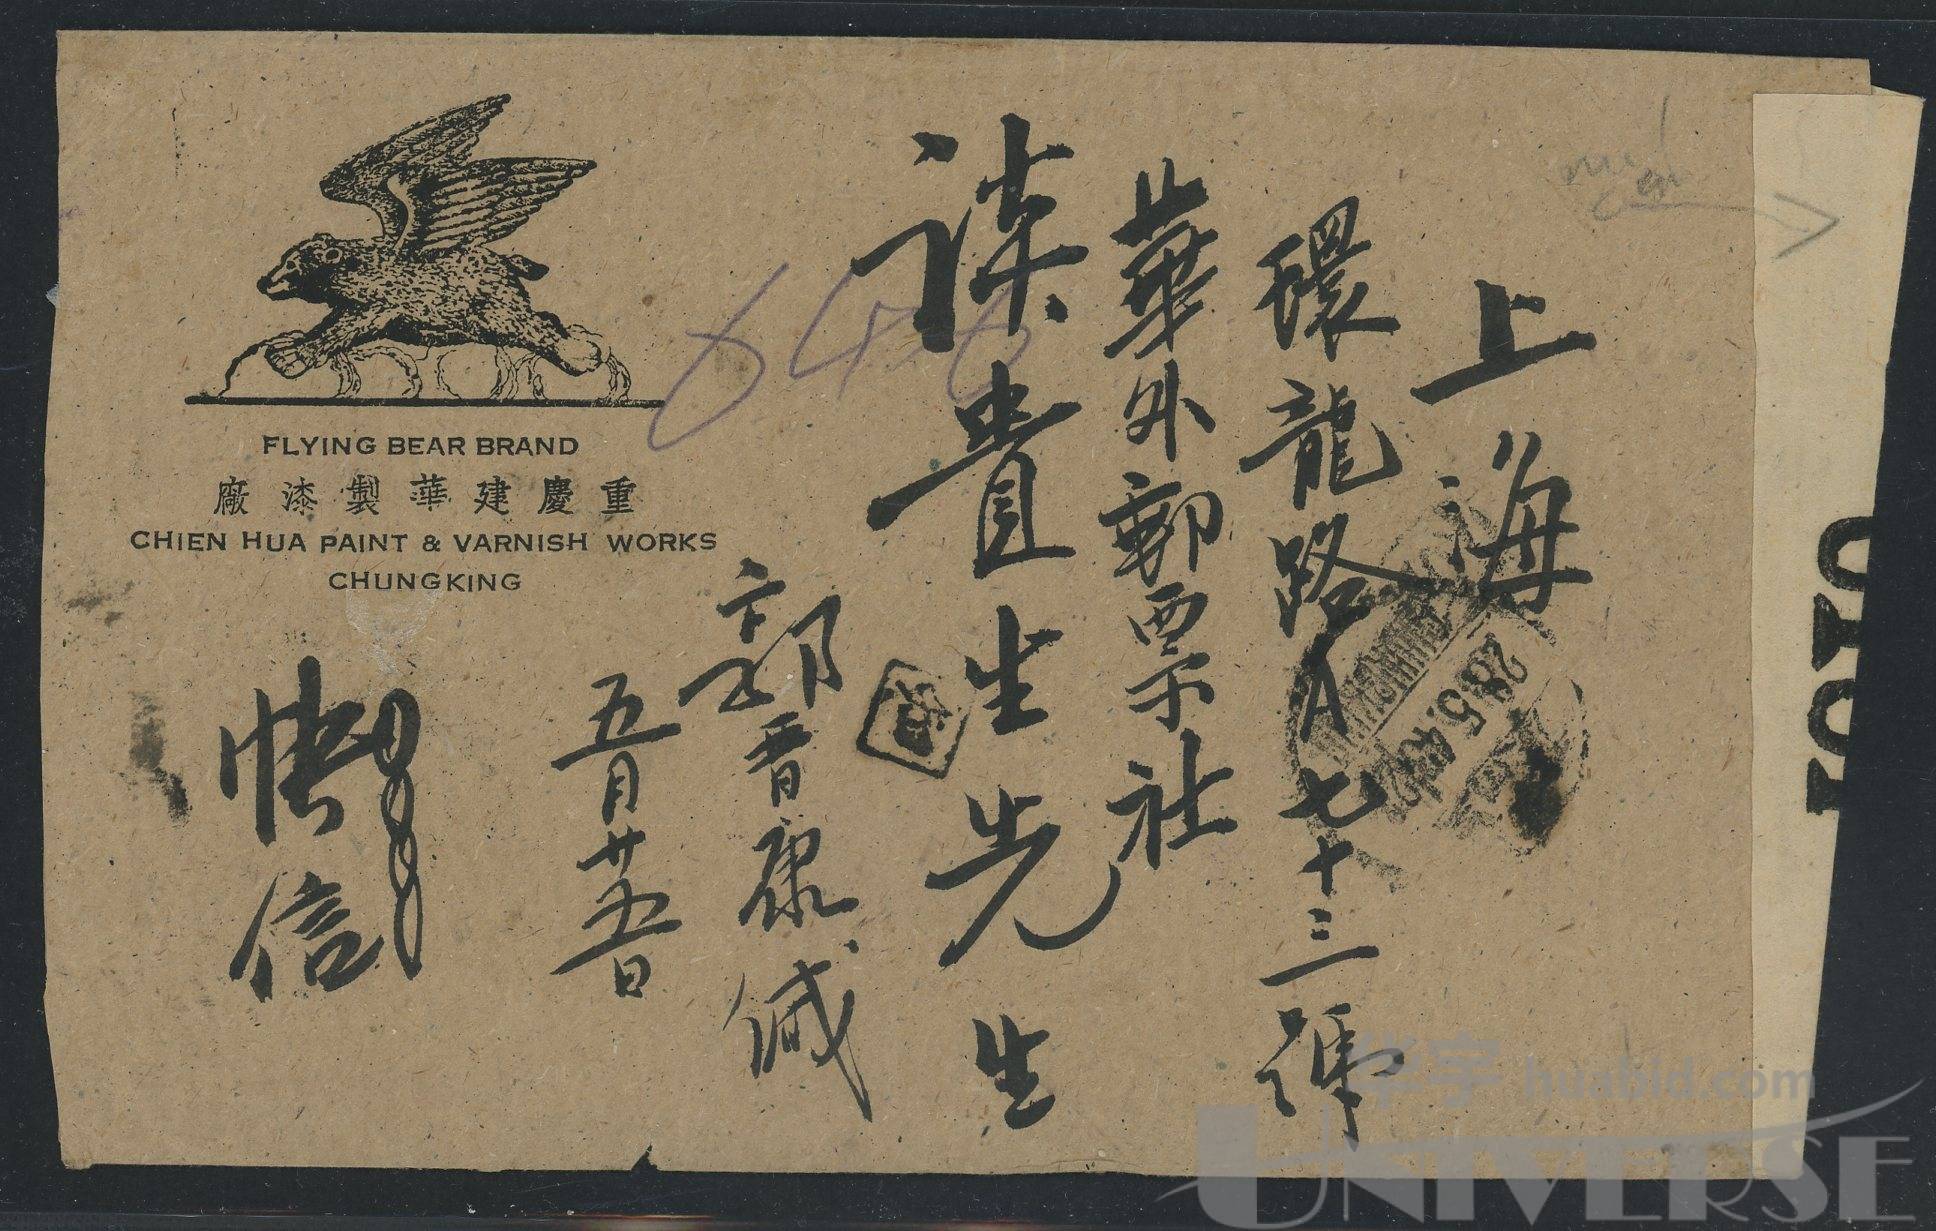 上海
環龍路A七十三號
華外郵票社
貴生先生
郭晋康緘
五月廿五日
快信
FLYING BEAR BRAND
廠漆製華建慶重
CHIEN HUA PAINT & VARNISH WORKS
CHUNGKING
646
28.5.4
华宇 huabid.com
UNIVERSE